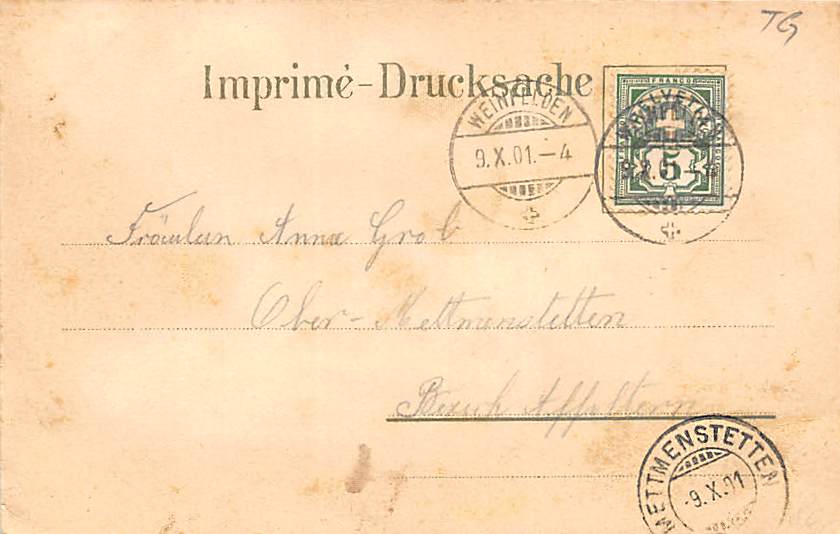 TG
Imprimé-Drucksache
FRANCO
WEINFELDEN
9.X.01.-4
5
Fräulein Anna Grob
Ober-Mettmenstetten
Bezirk Affoltern
METTMENSTETTEN
-9.X.01